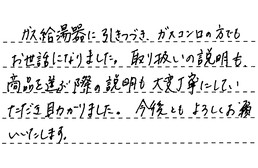 ガス給湯器に引きつづき、ガスコンロの方でも
お世話になりました。取り扱いの説明も、
商品を選ぶ際の説明も大変丁寧にしてい
ただき助かりました。今後ともよろしくお願
いいたします。